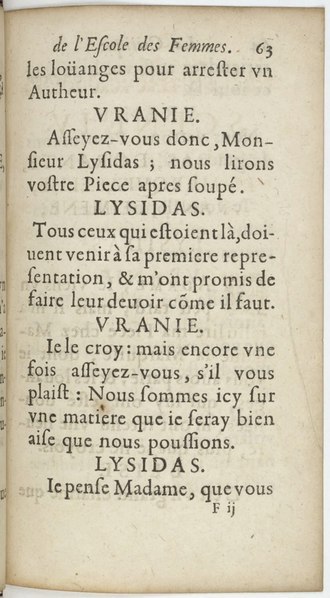 de l'Eſcole des Femmes. 63
les loüanges pour arreſter vn
Autheur.
VRANIE.
Aſſeyez-vous donc, Mon-
ſieur Lyſidas ; nous lirons
voſtre Piece apres ſoupé.
LYSIDAS.
Tous ceux qui eſtoient là, doi-
uent venir à ſa premiere repre-
ſentation, & m'ont promis de
faire leur deuoir cõme il faut.
VRANIE.
Ie le croy : mais encore vne
fois aſſeyez-vous, s'il vous
plaiſt : Nous ſommes icy ſur
vne matiere que ie ſeray bien
aiſe que nous pouſſions.
LYSIDAS.
Ie penſe Madame, que vous
F ij